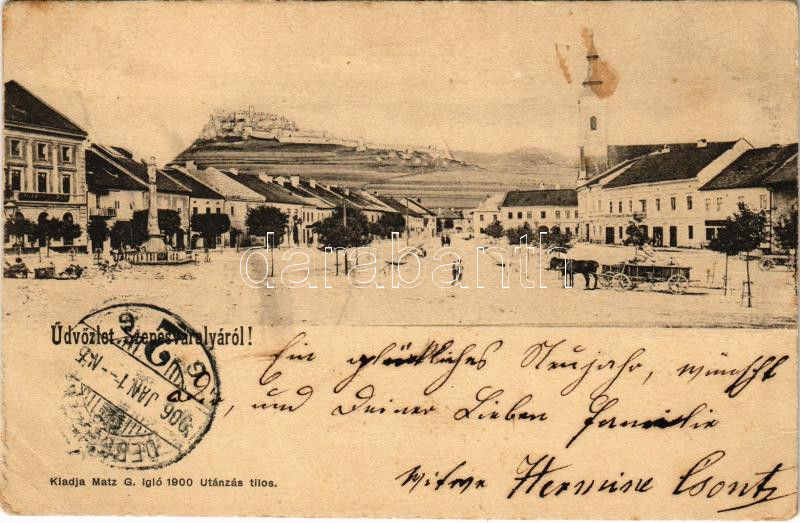 darabanth
Üdvözlet Szepesváralyáról!
Ein glückliches Neujahr, wünscht
und Deiner Lieben familie
witwe Hermine Csontz
906 JAN. 1
DEBR
Kiadja Matz G. Igló 1900 Utánzás tilos.